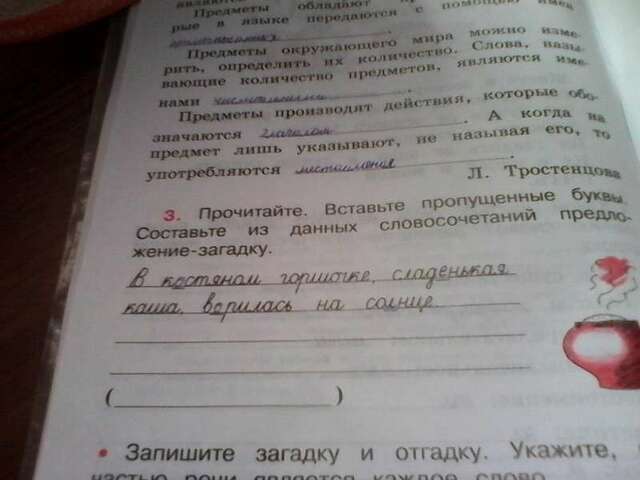 Предметы обладают
рые в языке передаются с помощью имён
прилагательных.
Предметы окружающего мира можно изме-
рить, определить их количество. Слова, назы-
вающие количество предметов, являются име-
нами числительными.
Предметы производят действия, которые обо-
значаются глаголом. А когда на
предмет лишь указывают, не называя его, то
употребляются местоимения.
Л. Тростенцова
3. Прочитайте. Вставьте пропущенные буквы.
Составьте из данных словосочетаний предло-
жение-загадку.
В костяном горшочке, сладенькая
каша, варилась на солнце.
( )
• Запишите загадку и отгадку. Укажите,
частью речи является каждое слово.